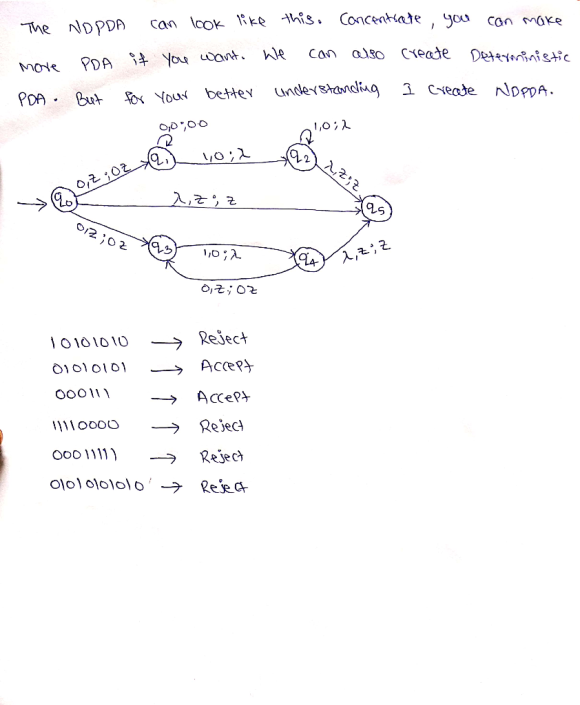 The NDPDA can look like this. Concentrate, you can make
more PDA if you want. We can also create Deterministic
PDA. But for your better understanding I create NDPDA.
0,0;00
1,0;λ
q1
1,0;λ
q2
0,Z;0Z
λ,Z;Z
q0
λ,Z;Z
q5
0,Z;0Z
q3
1,0;λ
q4
λ,Z;Z
0,Z;0Z
10101010 → Reject
01010101 → Accept
000111 → Accept
11110000 → Reject
00011111 → Reject
01010101010 → Reject